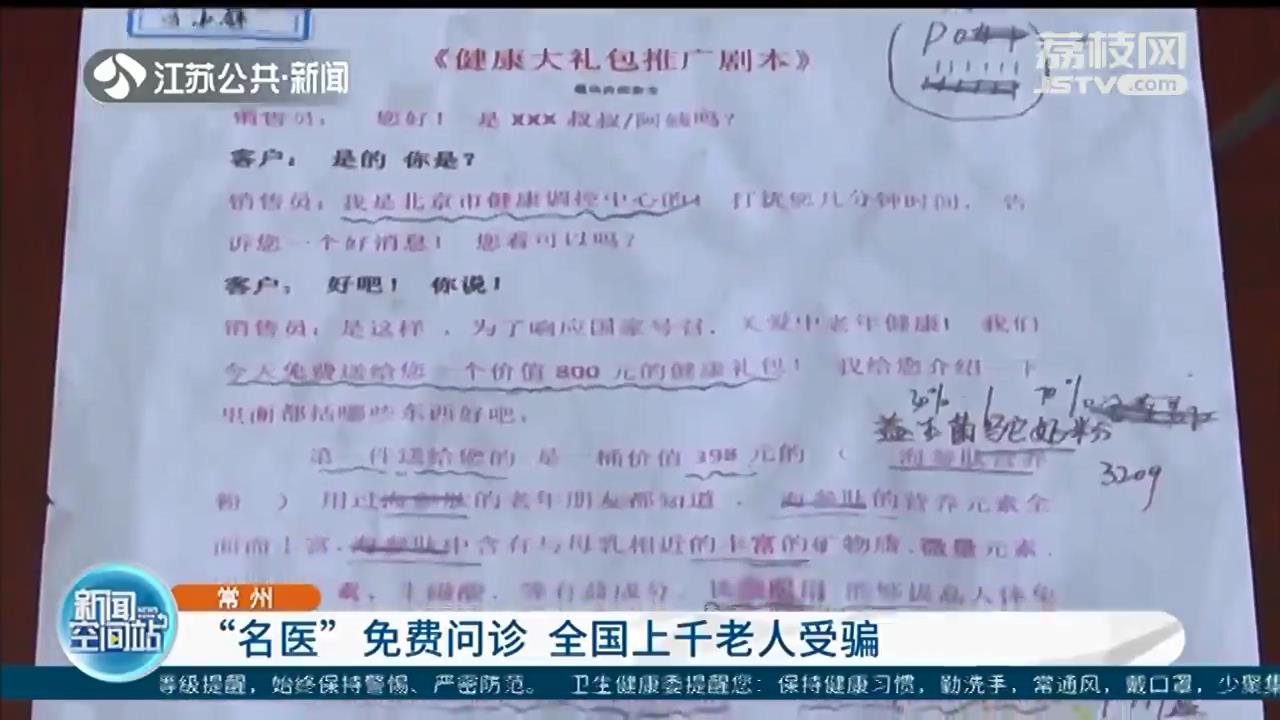 江苏公共·新闻
荔枝网
JSTV.com
《健康大礼包推广剧本》
销售员： 您好！ 是 XXX 叔叔/阿姨吗？
客户： 是的 你是？
销售员：我是北京市健康调控中心的！ 打扰您几分钟时间， 告
诉您一个好消息！ 您看可以吗？
客户： 好吧！ 你说！
销售员：是这样 ，为了响应国家号召，关爱中老年健康！ 我们
今天免费送给您一个价值 800 元的健康礼包！ 我给您介绍一下
里面都括哪些东西好吧，
30% 70%
益生菌 驼奶粉
320g
第一件送给您的 是一桶价值 398 元的 （ 海参肽营养
粉 ） 用过海参肽的老年朋友都知道 ， 海参肽的营养元素全
面而丰富，海参肽中含有与母乳相近的丰富的矿物质，微量元素，
素，牛磺酸，等有益成分， 能够提高人体免
新闻
NEWS
空间站
常州
“名医”免费问诊 全国上千老人受骗
等级提醒，始终保持警惕、严密防范。 卫生健康委提醒您：保持健康习惯，勤洗手，常通风，戴口罩，少聚集